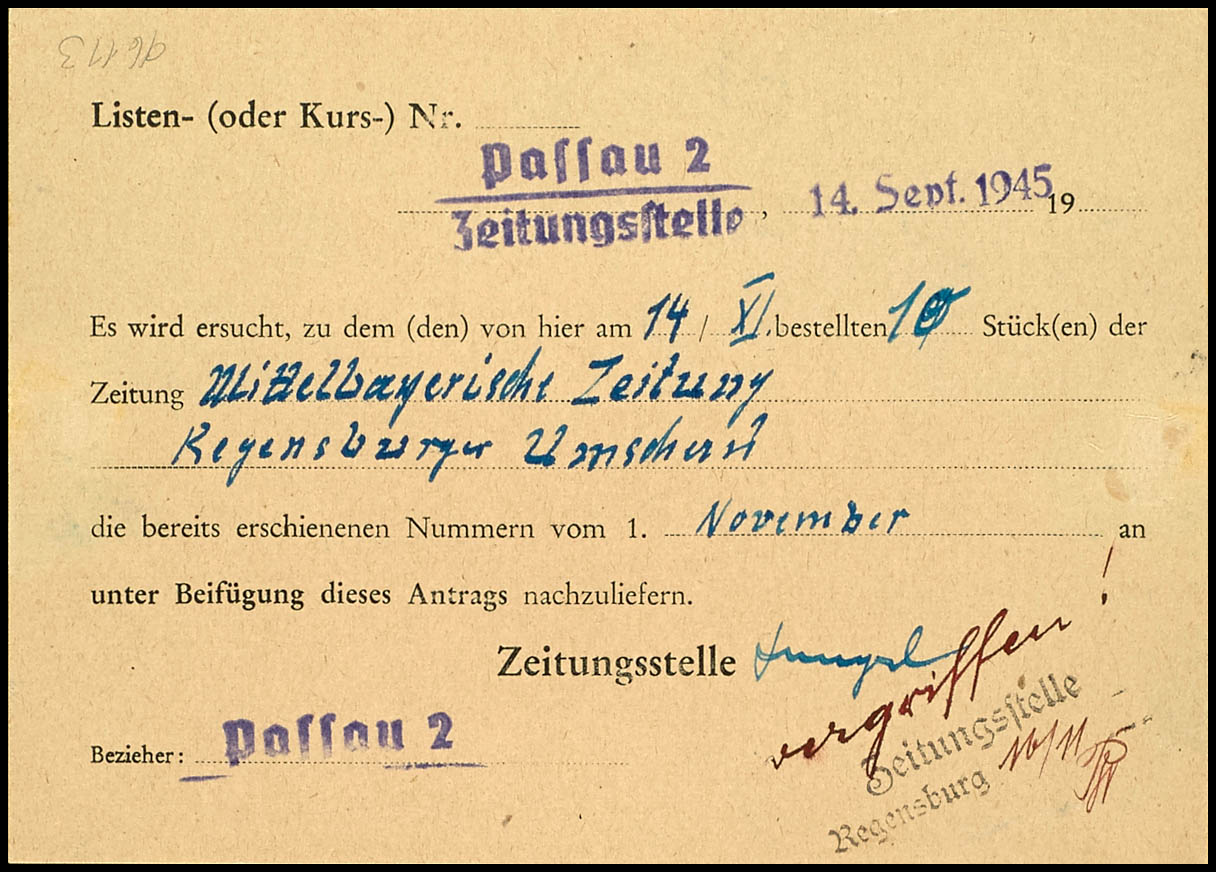 Listen- (oder Kurs-) Nr.
Passau 2
Zeitungsstelle, 14. Sept. 1945 19
Es wird ersucht, zu dem (den) von hier am 14 / XI. bestellten 10 Stück(en) der
Zeitung Mittelbayerische Zeitung
Regensburger Umschau
die bereits erschienenen Nummern vom 1. November an
unter Beifügung dieses Antrags nachzuliefern.
Zeitungsstelle
vergriffen!
Bezieher: Passau 2
Zeitungsstelle
Regensburg 16/11